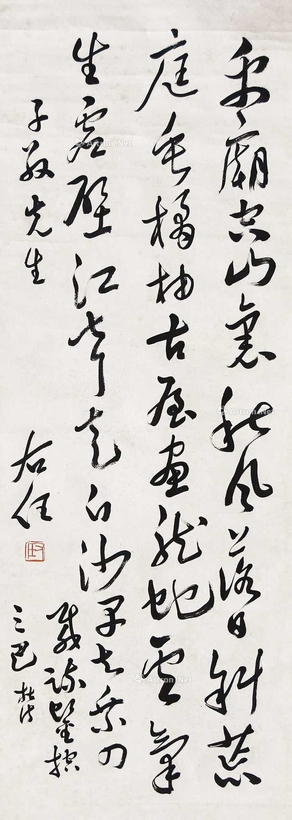 禹廟空山裏秋風落日斜荒
庭垂橘柚古屋畫龍蛇雲氣
生虛壁江聲走白沙早知乘四
載疏鑿控
三巴 杜詩
子敬先生
右任